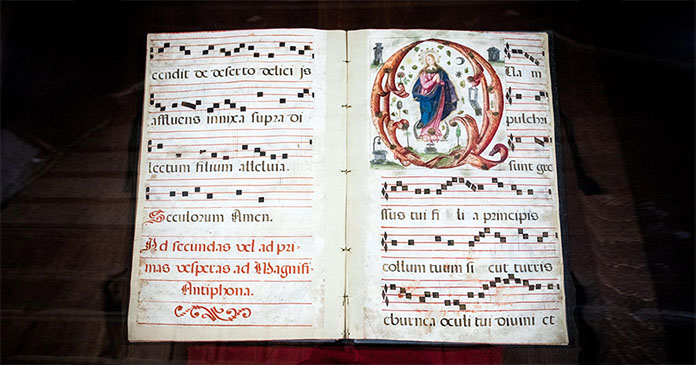 cendit de deserto delici js
affluens innixa supra di
lectum filium alleluia.
Seculorum Amen.
Ad secundas vel ad pri-
mas vesperas ad Magnifi-
Antiphona.
QUa m
pulchri
sunt gre
ssus tui fi li a principis
collum tuum si cut turris
eburnea oculi tui divini et